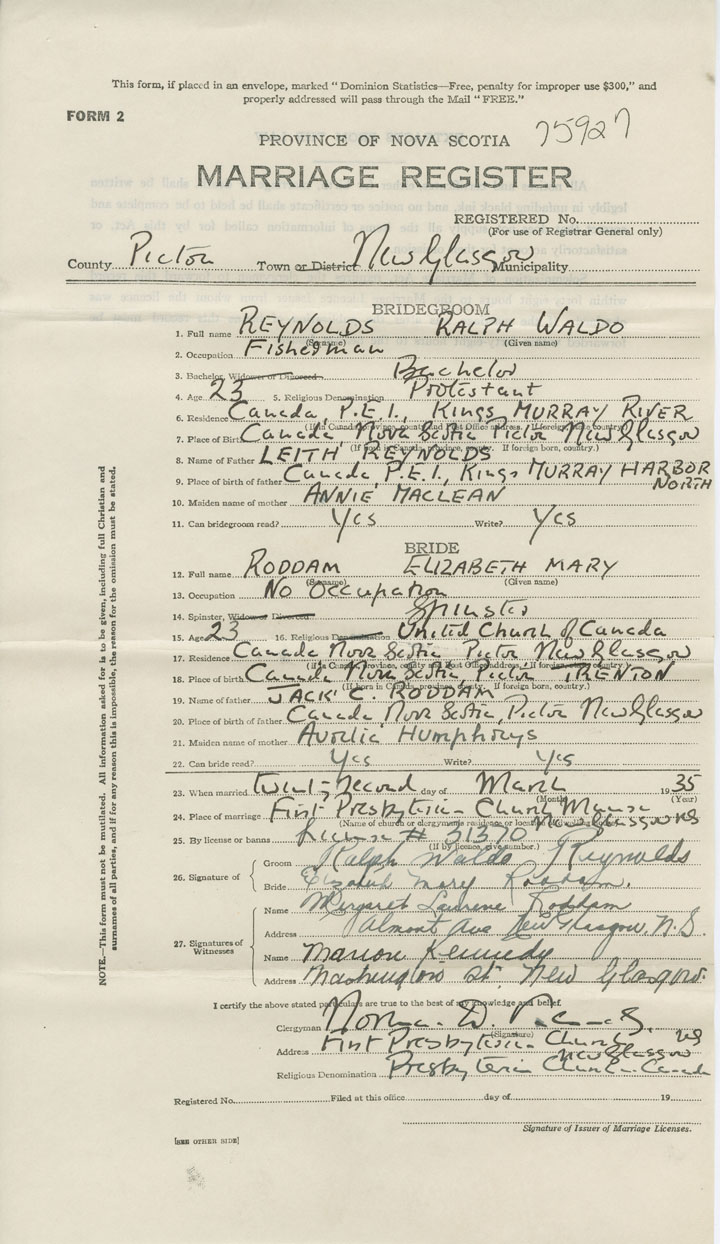 This form, if placed in an envelope, marked "Dominion Statistics—Free, penalty for improper use $300," and
properly addressed will pass through the Mail "FREE."
FORM 2
75927
PROVINCE OF NOVA SCOTIA
MARRIAGE REGISTER
REGISTERED No.
(For use of Registrar General only)
County Pictou Town or District New Glasgow Municipality
BRIDEGROOM
1. Full name REYNOLDS RALPH WALDO
(Surname) (Given name)
2. Occupation Fisherman
3. Bachelor, Widower or Divorced Bachelor
4. Age 23 5. Religious Denomination Protestant
6. Residence Canada, P.E.I., Kings, MURRAY RIVER
7. Place of Birth Canada, Nova Scotia, Pictou New Glasgow
8. Name of Father LEITH REYNOLDS
9. Place of birth of father Canada, P.E.I., Kings MURRAY HARBOR
NORTH
10. Maiden name of mother ANNIE MACLEAN
11. Can bridegroom read? Yes Write? Yes
BRIDE
12. Full name RODDAM ELIZABETH MARY
(Surname) (Given name)
13. Occupation No Occupation
14. Spinster, Widow or Divorced Spinster
15. Age 23 16. Religious Denomination United Church of Canada
17. Residence Canada Nova Scotia Pictou New Glasgow
18. Place of birth Canada, Nova Scotia, Pictou TRENTON
19. Name of father JACK C. RODDAM
20. Place of birth of father Canada, Nova Scotia, Pictou New Glasgow
21. Maiden name of mother Aurelia Humphreys
22. Can bride read? Yes Write? Yes
23. When married twenty second day of March 1935
(Month) (Year)
24. Place of marriage First Presbyterian Church Manse
New Glasgow NS
25. By license or banns License # 51370
(If by licence, give number.)
26. Signature of
Groom Ralph Waldo Reynolds
Bride Elizabeth Mary Roddam.
27. Signatures of Witnesses
Name Margaret Laurene Roddam
Address Almont Ave New Glasgow, N.S.
Name Marion Kennedy
Address Washington St. New Glasgow.
I certify the above stated particulars are true to the best of my knowledge and belief.
Clergyman Norman D.
(Signature)
Address First Presbyterian Church NS
New Glasgow
Religious Denomination Presbyterian Church in Canada
Registered No. Filed at this office day of 19
Signature of Issuer of Marriage Licenses.
[SEE OTHER SIDE]
NOTE.—This form must not be mutilated. All information asked for is to be given, including full Christian and
surnames of all parties, and if for any reason this is impossible, the reason for the omission must be stated.